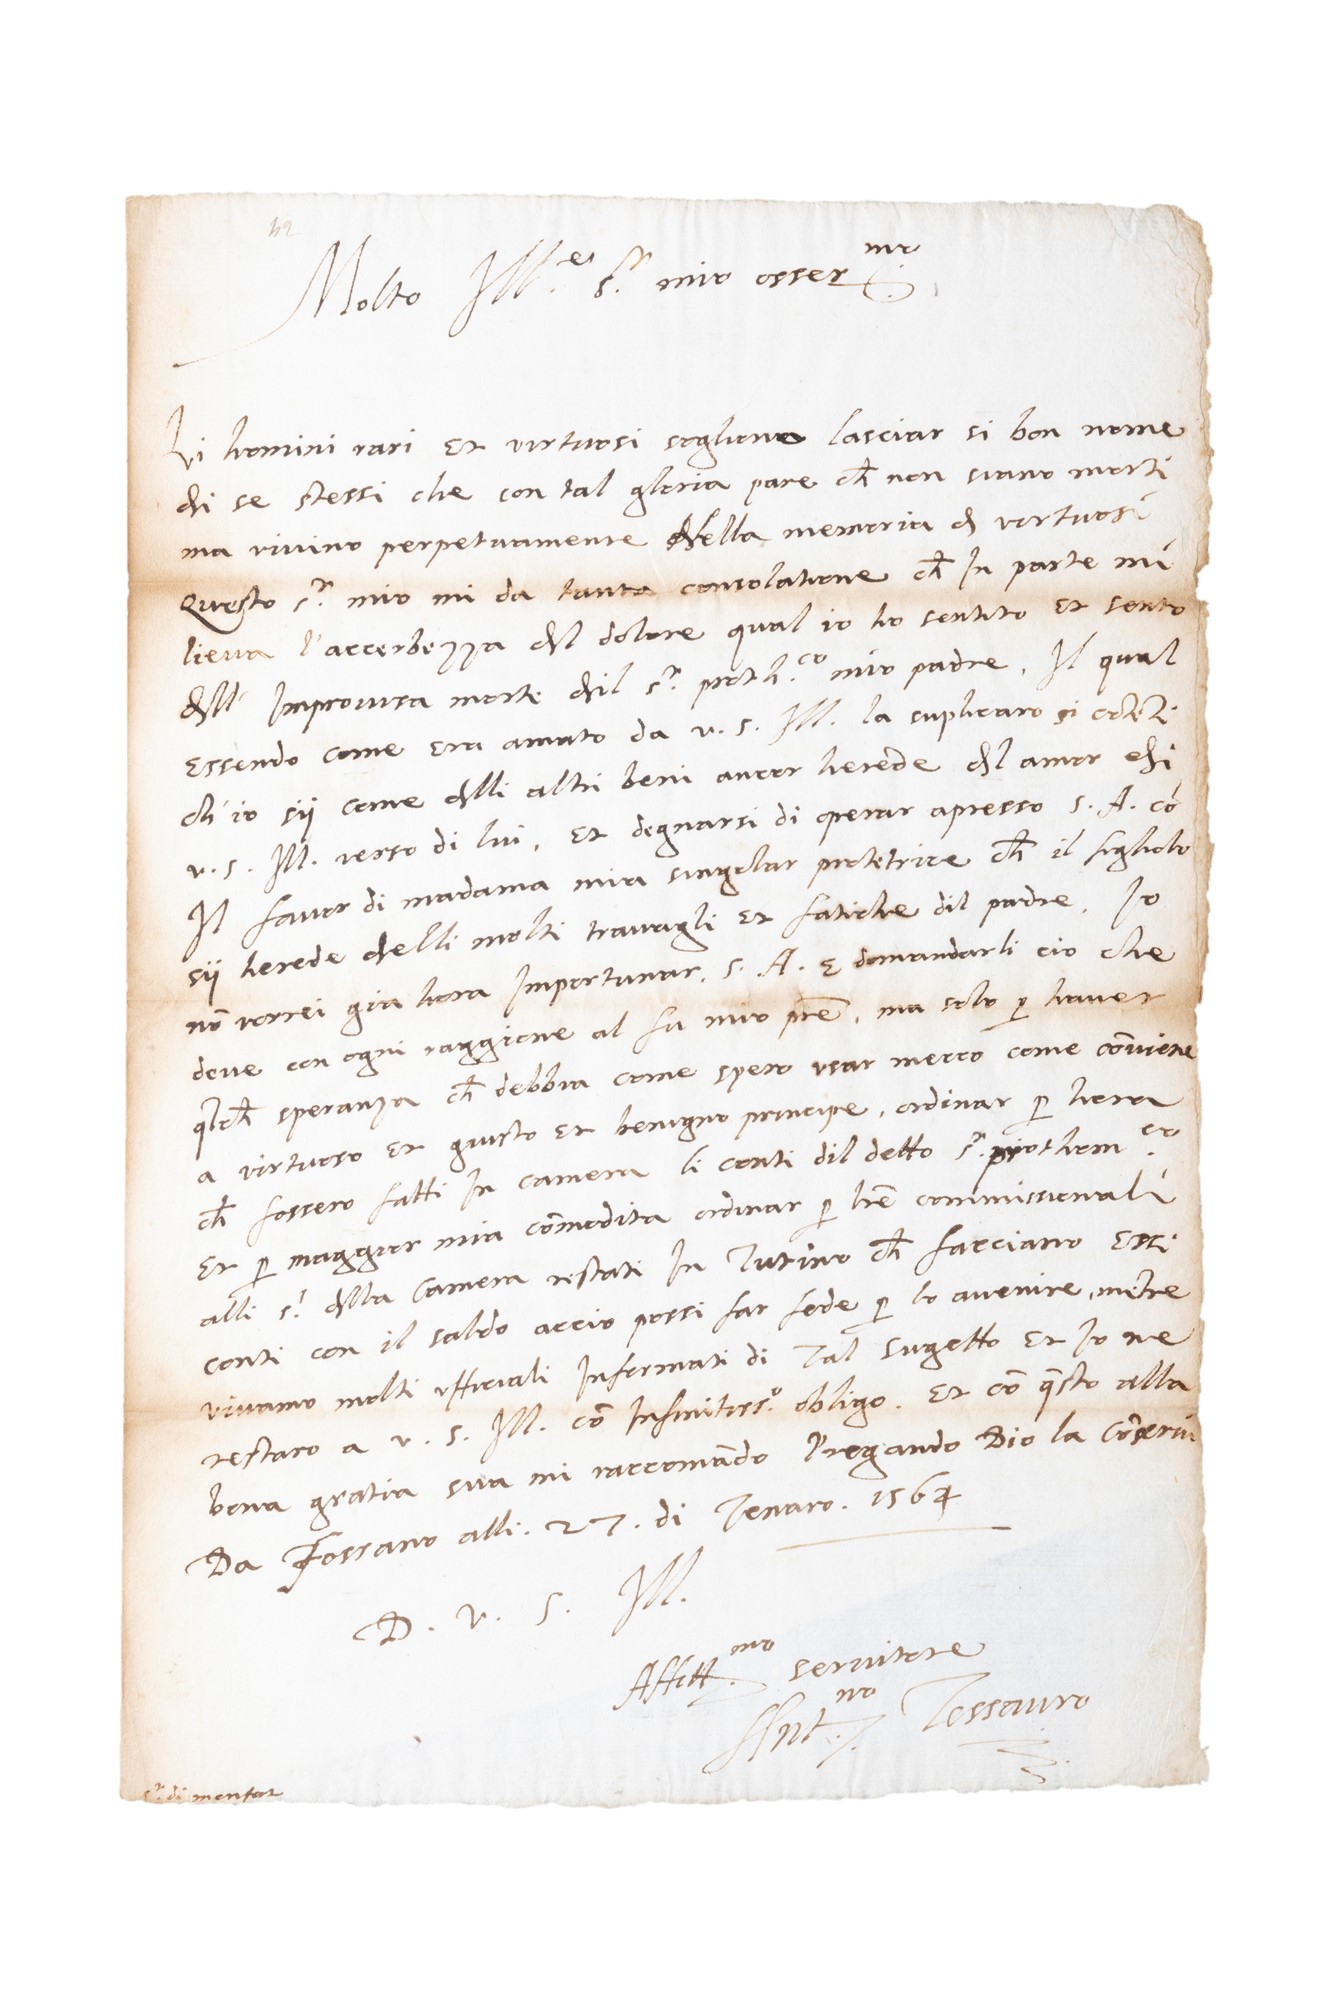 42
Molto Ill.e s.r mio osser.mo
Li homini rari et virtuosi sogliono lasciar si bon nome
di se stessi che con tal gloria pare ch non siano morti
ma vivino perpetuamente nella memoria d virtuosi
Questo s.r mio mi da tanta consolatione ch In parte mi
lieva l'accerbezza dl dolore qual io ho sentito et sento
dll' Improvisa morte dil s.r proth.co mio padre. Il qual
essendo come era amato da v. s. Ill. la suplicaro si
ch' io sij come dlli altri beni ancor herede dl amor di
v. s. Ill. verso di lui, et degnarsi di operar apresso s. A. cō
Il favor di madama mia singolar protetrice ch il figliolo
sij herede delli molti travagli et fatiche dil padre. Io
nō vorrei gia hora Importunar s. A. e domandarli cio che
deve con ogni raggione al fu mio prē, ma solo p haver
qlch speranza ch debbia come spero usar mecco come cōviene
a virtuoso et giusto et benigno principe, ordinar p hora
ch fossero fatti In camera li conti dil detto s.r prothom.co
et p maggior mia cōmodita ordinar p lrē commissionali
alli s.ri dlla Camera restati In Turino ch facciano essi
conti con il saldo accio possi far fede p lo avenire, mētre
vivamo molti ufficiali Informati di Tal sugetto et Io ne
restaro a v. s. Ill. cō Infinitiss.o obligo. et cō qsto alla
bona gratia sua mi raccomādo Pregando Dio la Cōservi
Da Fossano alli. 27. di Genaro. 1564
D. v. s. Ill.
Affett.mo servitore
Ant.no Tessauro
s.r di